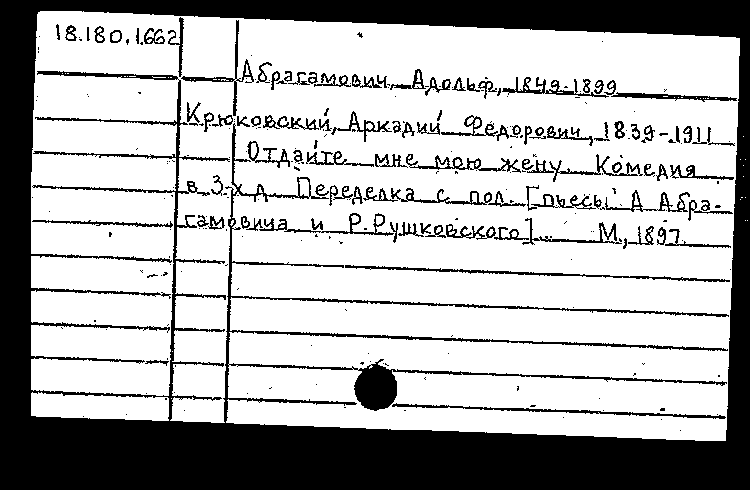 18.180.1.662
Абрагамович, Адольф, 1849-1899
Крюковский, Аркадий Федорович, 1839-1911
Отдайте мне мою жену. Комедия
в 3-х д. Переделка с пол. [пьесы А Абра-
гамовича и Р. Рушковского]... М., 1897.